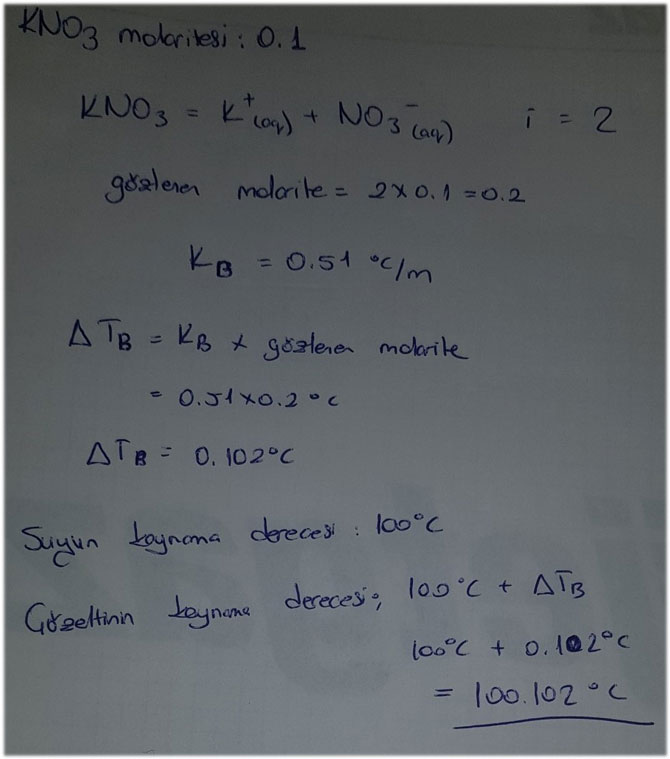 KNO3 molaritesi: 0.1
KNO3 = K+(aq) + NO3-(aq) i = 2
gözlenen molarite = 2x0.1=0.2
KB = 0.51 °C/m
ΔTB = KB x gözlenen molarite
= 0.51x0.2 °C
ΔTB = 0.102°C
Suyun kaynama derecesi : 100°C
Çözeltinin kaynama derecesi; 100°C + ΔTB
100°C + 0.102°C
= 100.102 °C